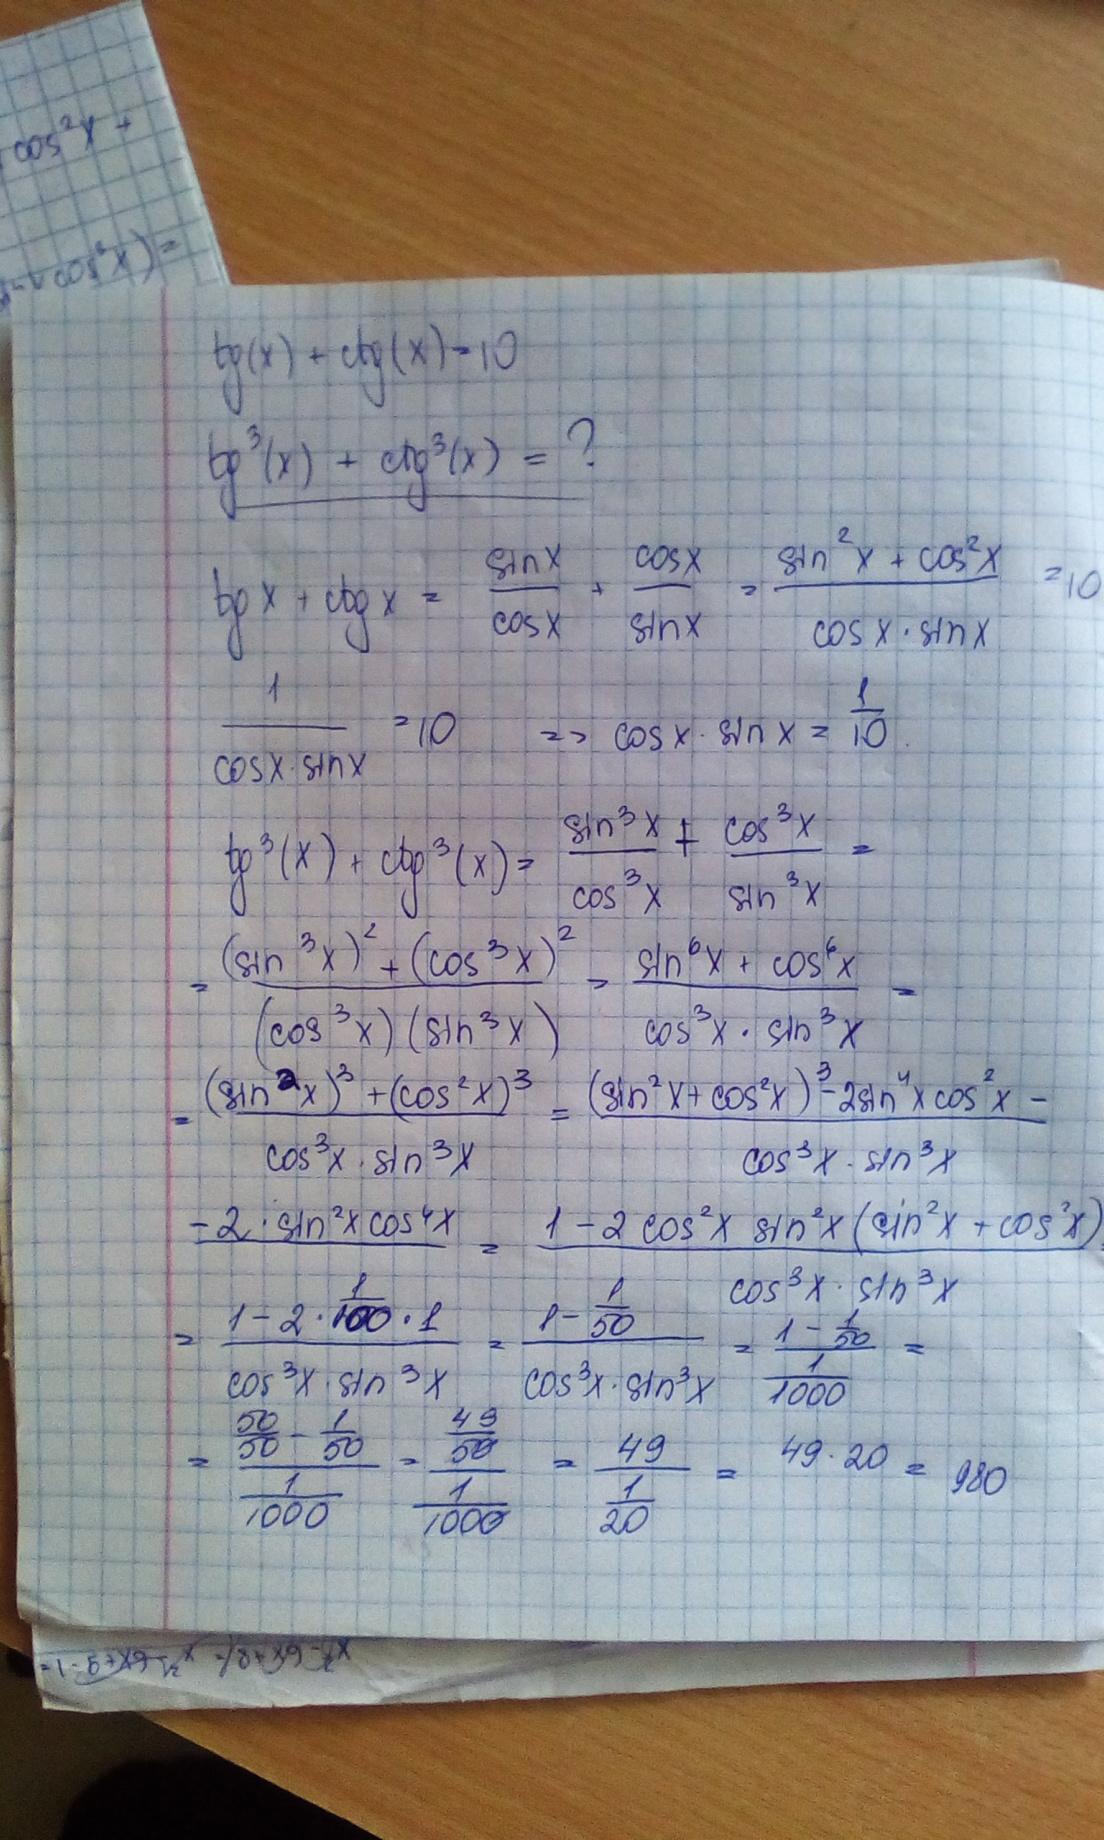 cos²x +
cos²x) =
tg(x) + ctg(x) = 10
tg³(x) + ctg³(x) = ?
tg x + ctg x = sinx/cosx + cosx/sinx = (sin²x + cos²x)/(cosx · sinx) = 10
1/(cosx·sinx) = 10 => cosx · sinx = 1/10
tg³(x) + ctg³(x) = sin³x/cos³x + cos³x/sin³x =
= ((sin³x)² + (cos³x)²)/((cos³x)(sin³x)) = (sin⁶x + cos⁶x)/(cos³x · sin³x) =
= ((sin²x)³ + (cos²x)³)/(cos³x · sin³x) = ((sin²x + cos²x)³ - 2sin⁴x cos²x -)/(cos³x · sin³x)
- 2 · sin²x cos⁴x = (1 - 2 cos²x sin²x (sin²x + cos²x))/(cos³x · sin³x)
= (1 - 2 · 1/100 · 1)/(cos³x · sin³x) = (1 - 1/50)/(cos³x · sin³x) = (1 - 1/50)/(1/1000) =
= (50/50 - 1/50)/(1/1000) = (49/50)/(1/1000) = 49/(1/20) = 49 · 20 = 980